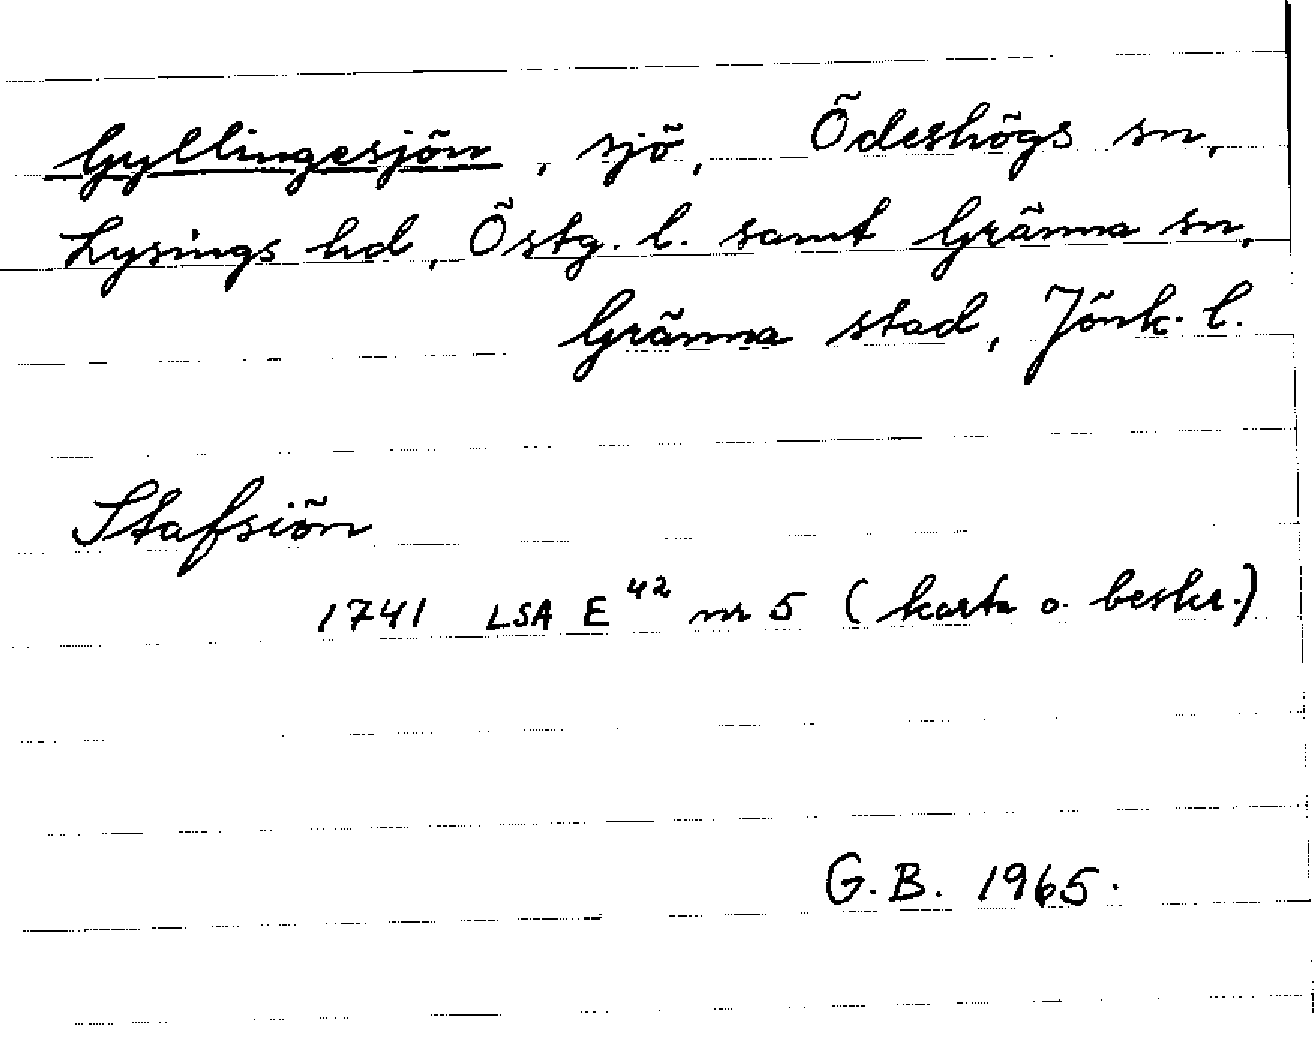 Gyllingesjön, sjö, Ödeshögs sn,
Lysings hd, Östg. l. samt Gränna sn,
Gränna stad, Jönk. l.
Stafsiön
1741 LSA E 42 nr 5 (karta o. beskr.)
G.B. 1965.